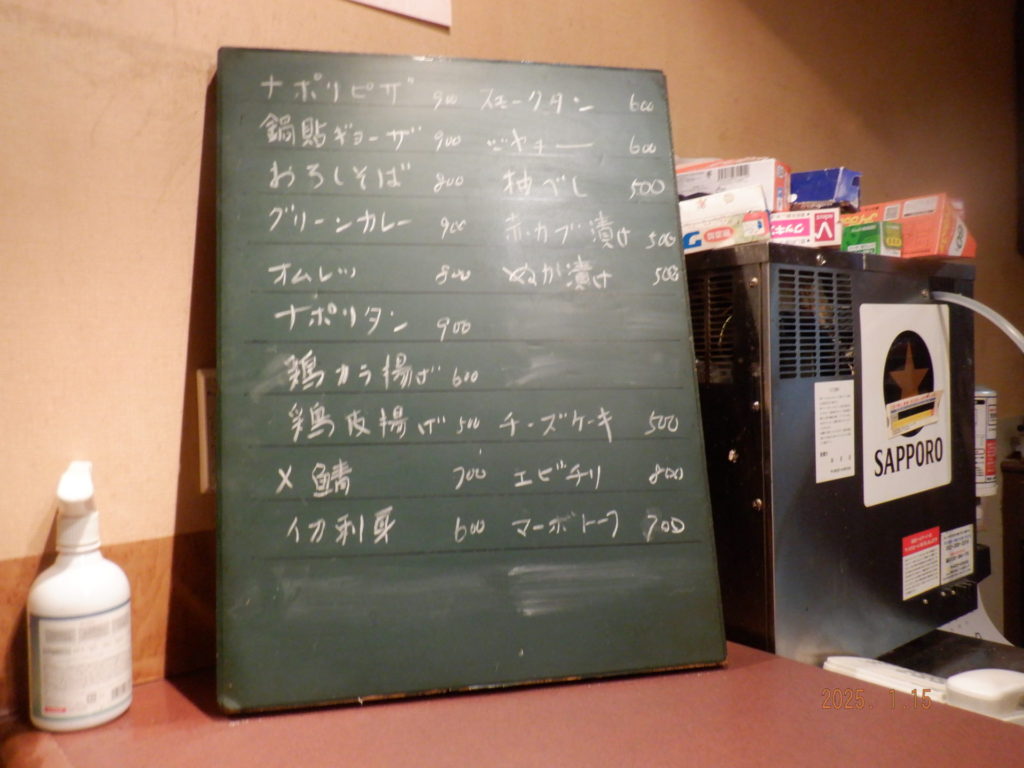 ナポリピザ 900 スモークタン 600
鍋貼ギョーザ 900 ジャキー 600
おろしそば 800 柚べし 500
グリーンカレー 900 赤カブ漬け 500
オムレツ 800 ぬか漬け 500
ナポリタン 900
鶏カラ揚げ 600
鶏皮揚げ 500 チーズケーキ 500
〆鯖 700 エビチリ 800
イカ刺身 600 マーボトーフ 700
SAPPORO
2025. 1.15